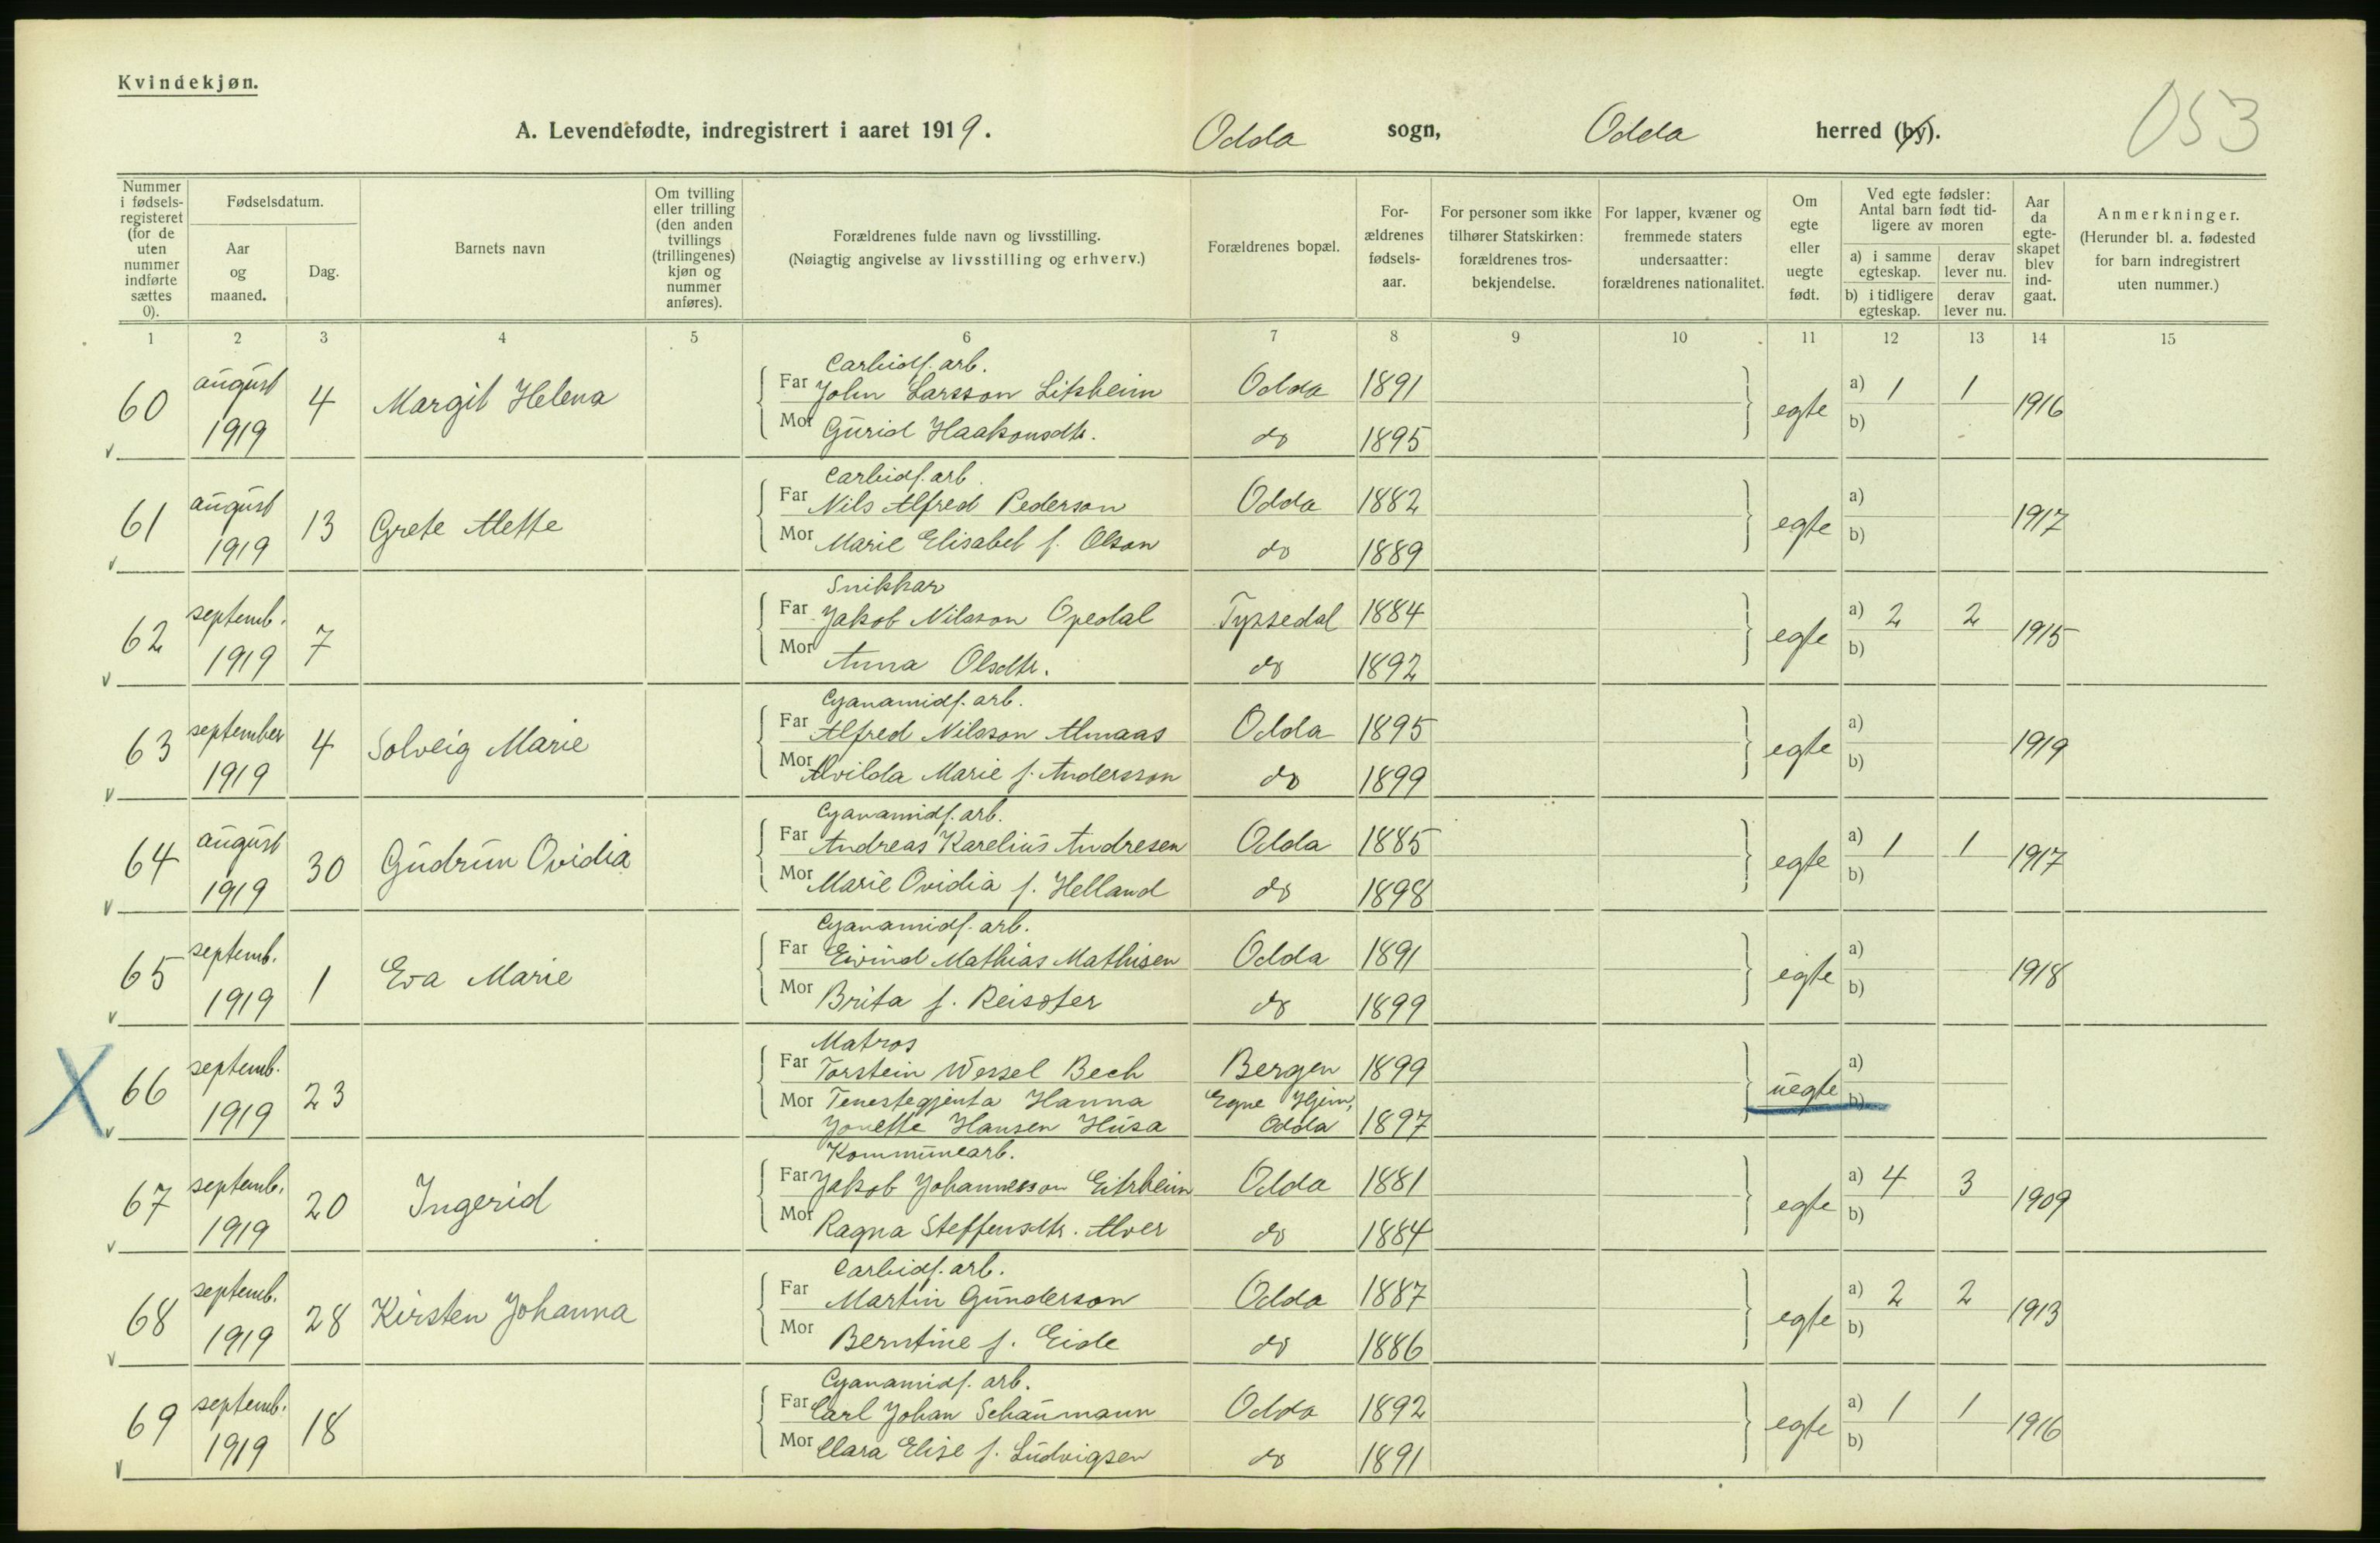 Kvindekjøn.
053
A. Levendefødte, indregistrert i aaret 1919. Odda sogn, Odda herred (by).
Nummer i fødsels-registeret (for de uten nummer indførte sættes 0).
Fødselsdatum.
Aar og maaned.
Dag.
Barnets navn
Om tvilling eller trilling (den anden tvillings (trillingenes) kjøn og nummer anføres).
Forældrenes fulde navn og livsstilling.
(Nøiagtig angivelse av livsstilling og erhverv.)
Forældrenes bopæl.
For-ældrenes fødsels-aar.
For personer som ikke tilhører Statskirken: forældrenes tros-bekjendelse.
For lapper, kvæner og fremmede staters undersaatter: forældrenes nationalitet.
Om egte eller uegte født.
Ved egte fødsler: Antal barn født tid-ligere av moren
a) i samme egteskap. derav lever nu.
b) i tidligere egteskap. derav lever nu.
Aar da egte-skapet blev ind-gaat.
Anmerkninger.
(Herunder bl. a. fødested for barn indregistrert uten nummer.)
1 2 3 4 5 6 7 8 9 10 11 12 13 14 15
Carbidf. arb.
60 august 1919 4 Margit Helena Far John Larsson Litsheim Odda 1891 egte a) 1 1 1916
Mor Gúrid Haakonsdtr. do 1895 b)
Carbidf. arb.
61 august 1919 13 Grete Alette Far Nils Alfred Pederson Odda 1882 egte a) 1917
Mor Marie Elisabet f. Olson do 1889 b)
Snikkar
62 septemb. 1919 7 Far Jakob Nilsson Opedal Tyssedal 1884 egte a) 2 2 1915
Mor Anna Olsdtr. do 1892 b)
Cyanamidf. arb.
63 september 1919 4 Solveig Marie Far Alfred Nilsson Almaas Odda 1895 egte a) 1919
Mor Alvilda Marie f. Andersson do 1899 b)
Cyanamidf. arb.
64 august 1919 30 Gudrun Ovidia Far Andreas Karelius Andresen Odda 1885 egte a) 1 1 1917
Mor Marie Ovidia f. Helland do 1898 b)
Cyanamidf. arb.
65 septemb. 1919 1 Eva Marie Far Eivind Mathias Mathisen Odda 1891 egte a) 1918
Mor Brita f. Reisøter do 1899 b)
Matros
X 66 septemb. 1919 23 Far Torstein Wessel Bech Bergen 1899 uegte a)
Mor Tenestegjenta Hanna Egne Hjem, b)
Jonette Hansen Husa Odda 1897
Kommunearb.
67 septemb. 1919 20 Ingerid Far Jakob Johannesson Eitrheim Odda 1881 egte a) 4 3 1909
Mor Ragna Steffensdtr. Alver do 1884 b)
Carbidf. arb.
68 septemb. 1919 28 Kirsten Johanna Far Martin Gunderson Odda 1887 egte a) 2 2 1913
Mor Berntine f. Eide do 1886 b)
Cyanamidf. arb.
69 septemb. 1919 18 Far Carl Johan Schaumann Odda 1892 egte a) 1 1 1916
Mor Clara Elise f. Ludvigsen do 1891 b)